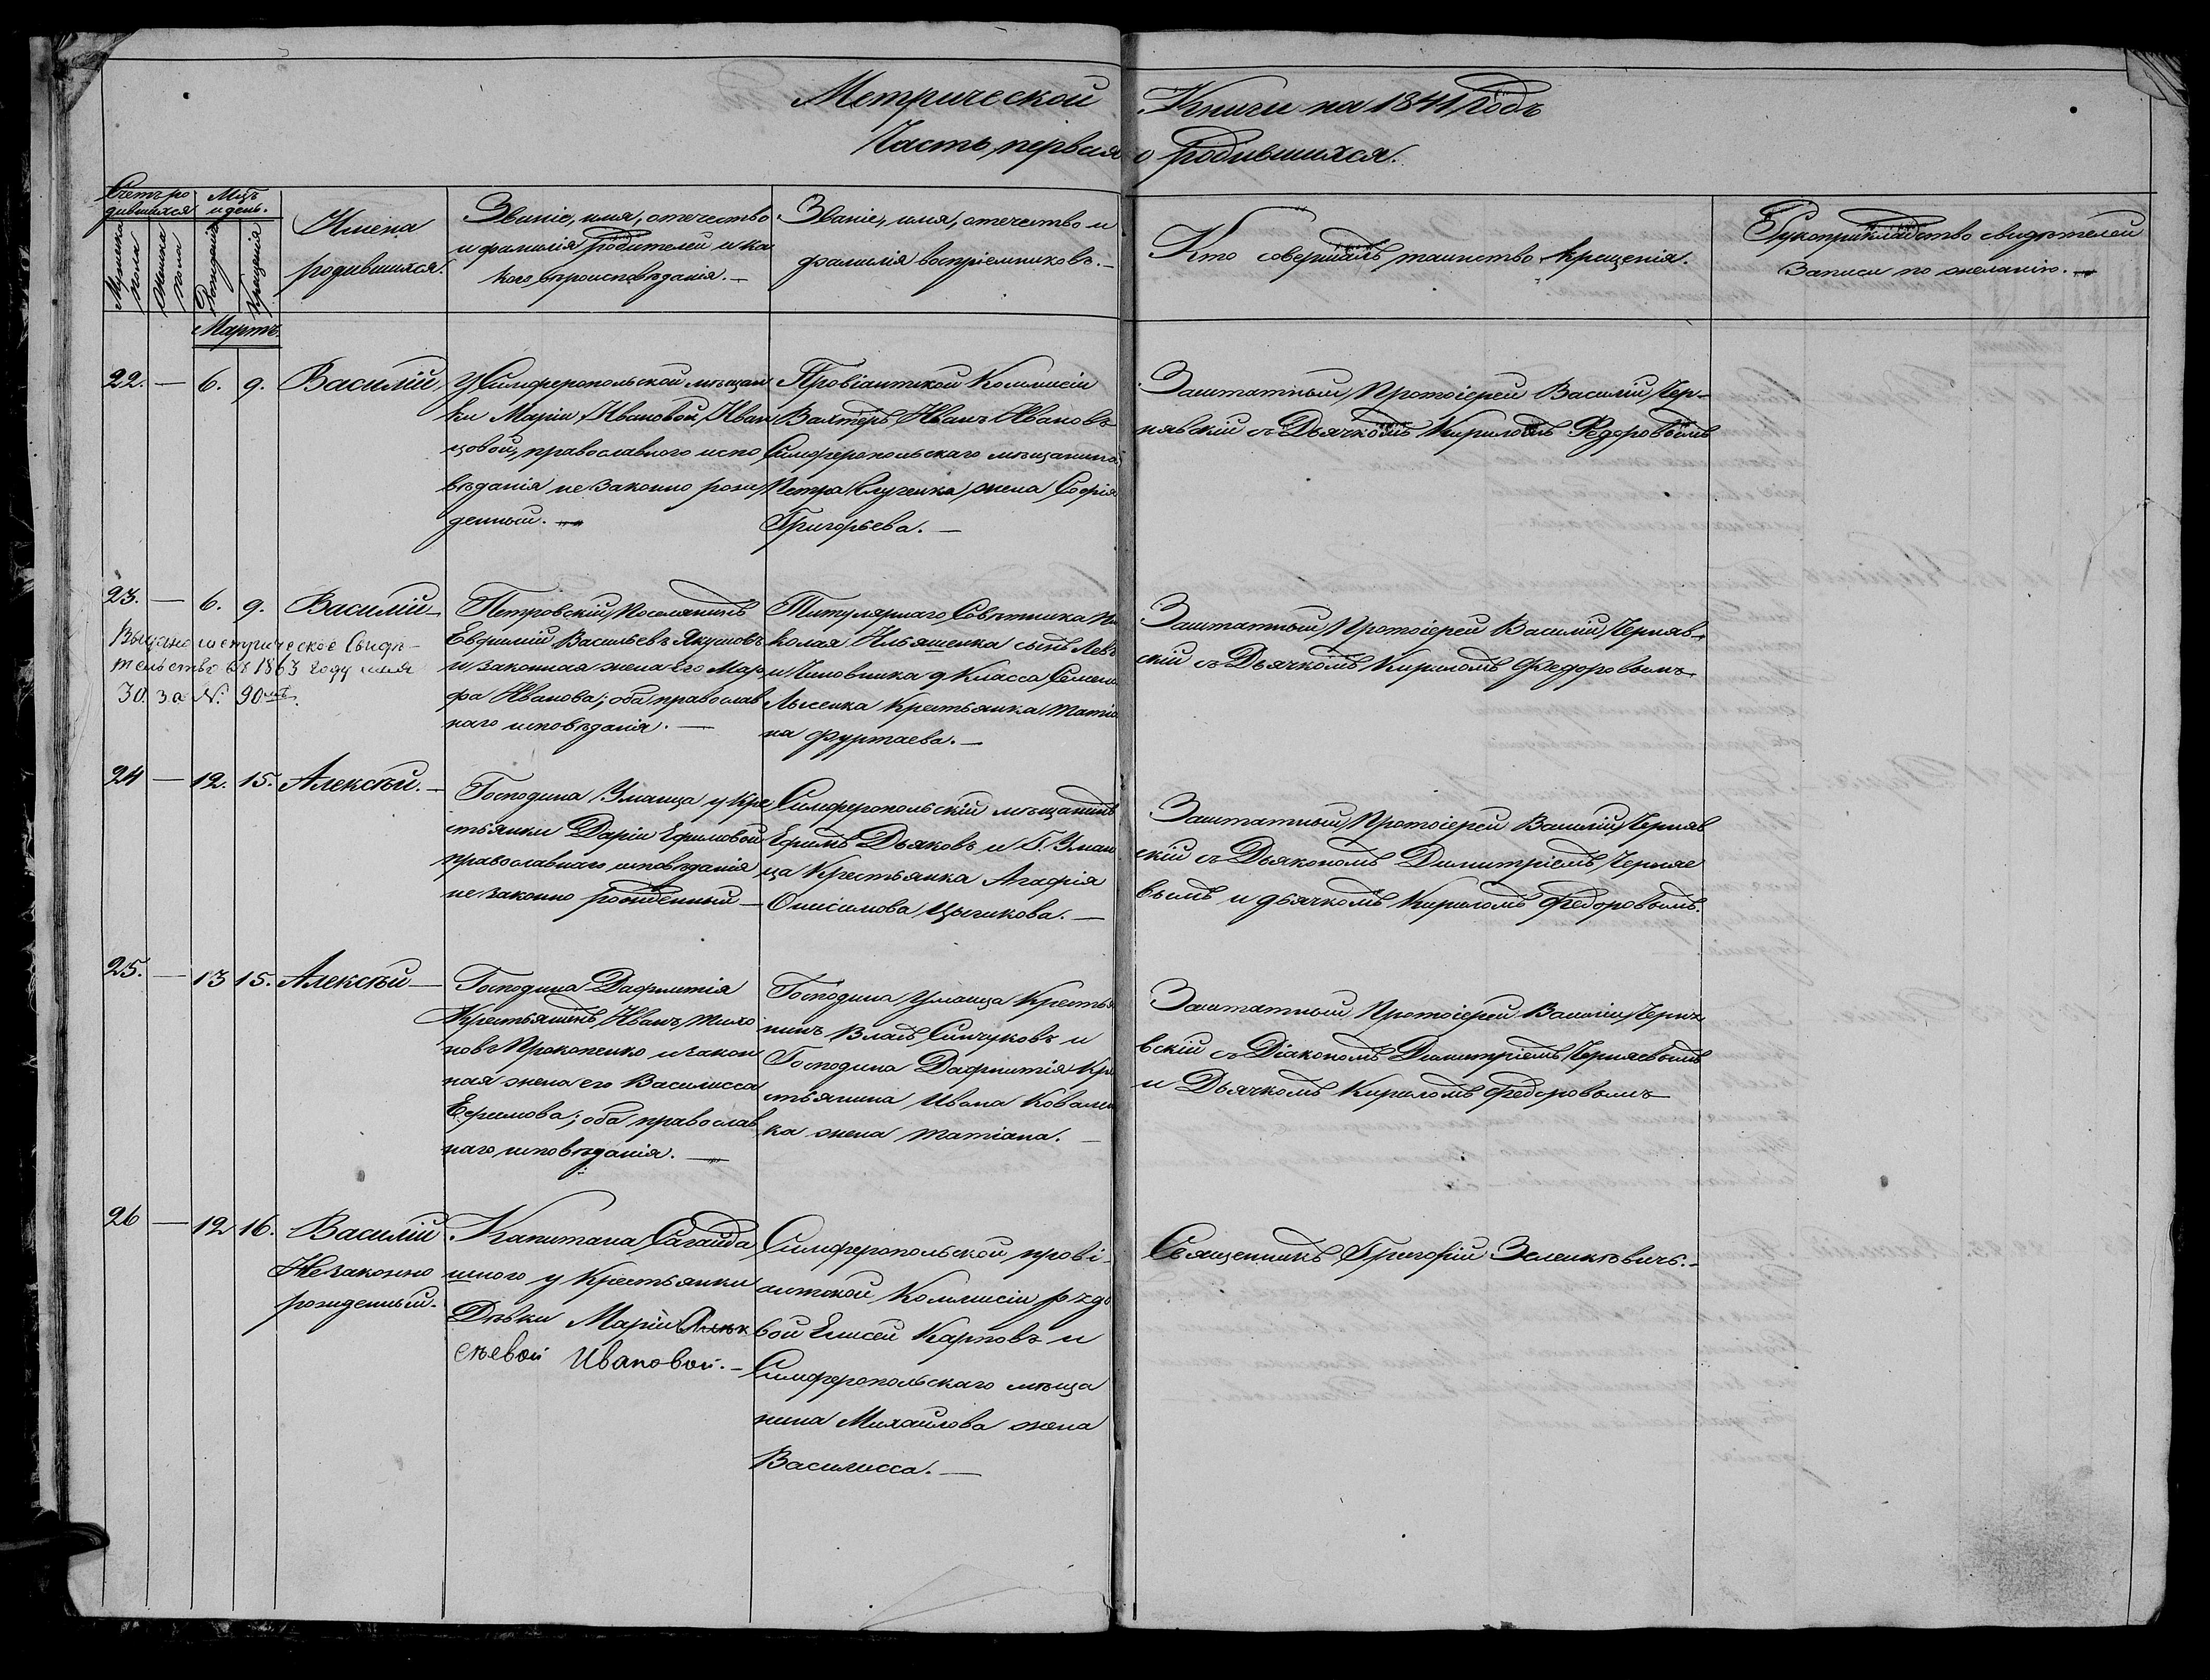 Метрической Книги на 1841 Годъ
Часть первая о родившихся.
Счетъ ро
дившихся
Мужеска
пола
Женска
пола
Мцъ
и день.
Рожденія
Крещенія
Имена
родившихся.
Званіе, имя, отечество
и фамилія родителей и ка
кого вѣроисповѣданія. —
Званіе, имя, отечество и
фамилія воспріемниковъ. —
Кто совершалъ таинство крещенія.
Рукоприкладство свидѣтелей
записи по желанію. —
Мартъ.
22. — 6. 9. Василій,
У Симферопольской мѣщан
ки Маріи Ивановой Иван
цовой, православного испо
вѣданія не законно рож
денный. —
Провіантской Коммисіи
Вахтеръ Иванъ Ивановъ
Симферопольскаго мѣщанина
Петра жена Софія
Григорьева. —
Заштатный Протоіерей Василій Чер-
нявскій съ Дьячкомъ Кириломъ Федоровымъ
23. — 6. 9. Василій —
Выдано метрическое Свидѣ-
тельство въ 1863 году мая
30. за №. 90мъ.
Петровскій Поселянинъ
Евфимій Васильевъ Якушовъ
и законная жена Его Мар
фа Иванова; оба православ
наго исповѣданія. —
Титулярнаго Совѣтника Ни
колая Ильяшенка сынъ Левъ
и Чиновника 9 Класса Семена
Лысенка Крестьянка Татіа
на Фуртаева. —
Заштатный Протоіерей Василій Черняв-
скій съ Дьячкомъ Кириломъ Федоровымъ
24 — 12. 15. Алексѣй. —
Господина Уманца у Кре
стьянки Даріи Ефимовой
православнаго исповѣданія
не законно рожденный —
Симферопольскій мѣщанинъ
Ефимъ Дьяковъ и Г. Уман
ца Крестьянка Агафія
Онисимова Цыганкова. —
Заштатный Протоіерей Василій Черняв
скій съ Дьякономъ Димитріемъ Черняе
вымъ и дьячкомъ Кириломъ Федоровымъ.
25. — 13 15. Алексѣй —
Господина Дафнитія
Крестьянинъ Иванъ Тихо
новъ Прокопенко и закон
ная жена его Василисса
Ефимова; оба православ
наго исповѣданія. —
Господина Уманца Крестья
нинъ Власъ Синчуковъ и
Господина Дафнитія Кре
стьянина Ивана Ковален
ка жена Татіана. —
Заштатный Протоіерей Василій Черня
вскій съ Діакономъ Димитріемъ Черняевымъ
и Дьячкомъ Кириломъ Федоровымъ
26 — 12 16. Василій
Незаконно
рожденный.
Капитана Сагайда
чного у Крестьянки
Дѣвки Маріи Алек
сѣевой Ивановой. —
Симферопольской прові-
антской Коммисіи рядо
вой Елисей Карповъ и
Симферопольскаго мѣща
нина Михайлова жена
Василисса. —
Священникъ Григорій Зеленкевичъ. —